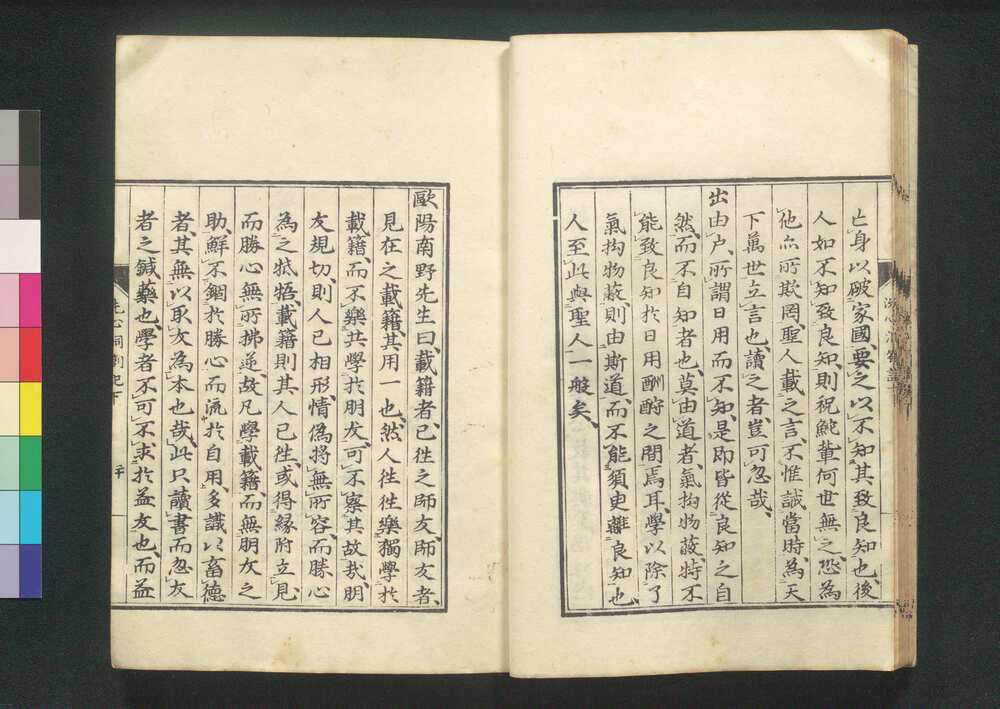 亡身以破家國、要之以不知其致良知也、後
人如不知致良知、則祝鮀輩何世無之、恐為
他所欺罔、聖人載之言、不惟誠當時、為天
下萬世立言也、讀之者、豈可忽哉、
出由户、所謂日用而不知、是即皆從良知之自
然、而不自知者也、莫由道者、氣拘物蔽、特不
能致良知於日用酬酢之間焉耳、學以除了
氣拘物蔽、則由斯道、而不能須臾離良知也、
人至此、與聖人一般矣、
歐陽南野先生曰、載籍者、已徃之師友、師友者、
見在之載籍、其用一也、然人徃徃樂獨學於
載籍、而不樂共學於朋友、可不察其故哉、朋
友規切、則人已相形、情偽將無所容、而勝心
為之牴牾、載籍則其人已徃、或得緣附立見
而勝心無所拂逆、故凡學載籍、而無朋友之
助、鮮不錮於勝心、而流於自用、多識以畜德
者、其無以取友為本也哉、此只讀書而忽友
者之鍼藥也、學者不可不求於益友也、而益
洗心洞劄記下
二十